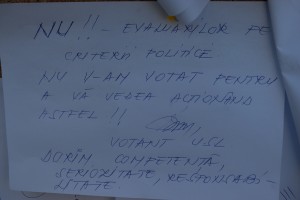 NU!! - EVALUARILOR PE
CRITERII POLITICE
NU V-AM VOTAT PENTRU
A VĂ VEDEA ACȚIONÂND
ASTFEL!!
VOTANT USL
DORIM COMPETENȚĂ,
SERIOZITATE, RESPONSABI-
LITATE.